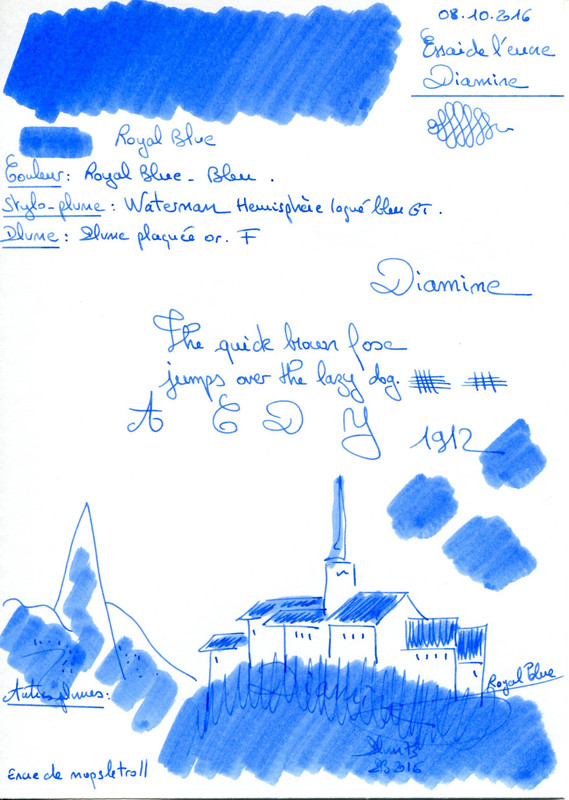 08.10.2016
Essai de l'encre
Diamine
Royal Blue
Couleur : Royal Blue - Bleu .
Stylo-plume : Waterman Hemisphère laqué bleu GT .
Plume : Plume plaquée or . F
Diamine
The quick brown fox
jumps over the lazy dog.
A E D Y 1912
Diamine
Royal Blue
Autres plumes :
2016
Encre de